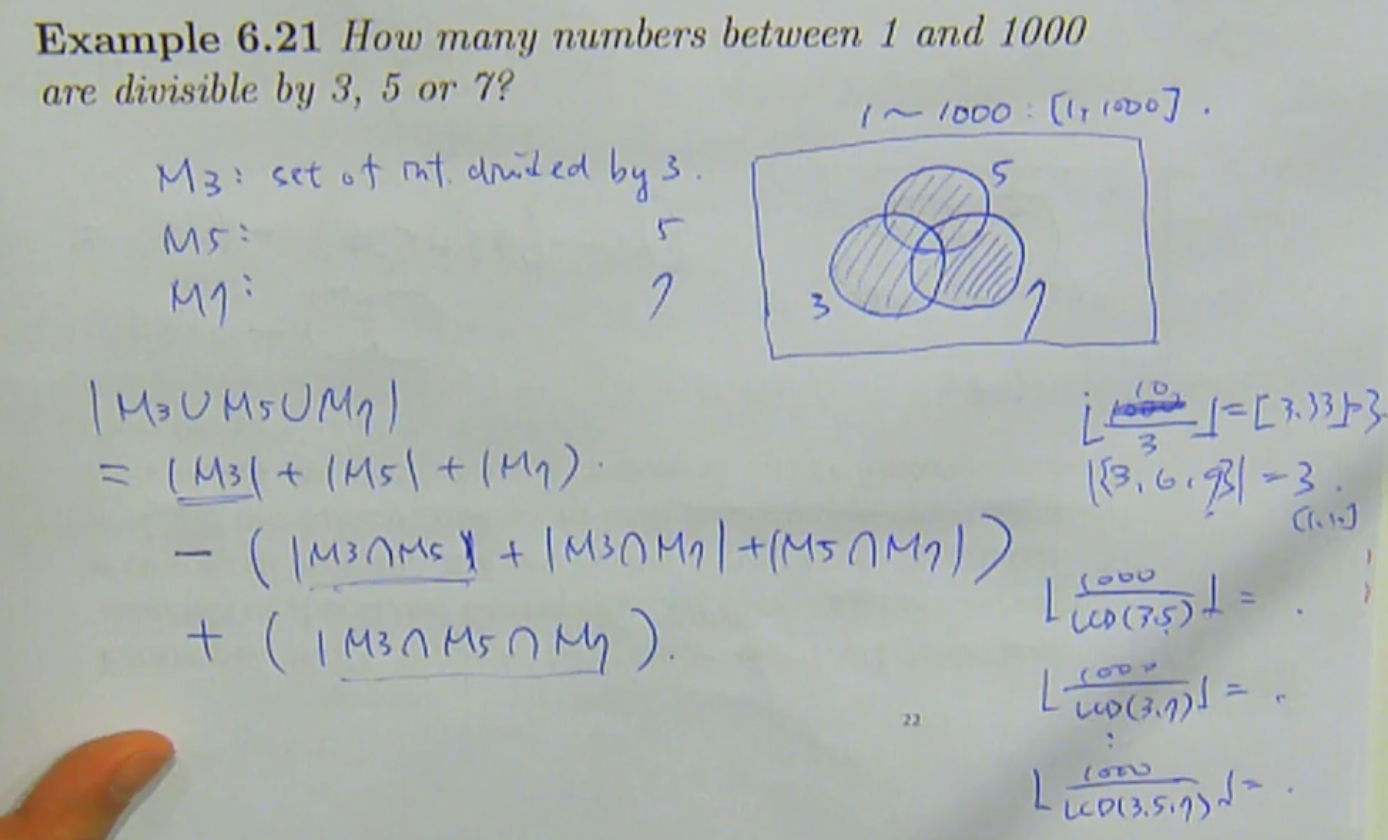 Example 6.21 How many numbers between 1 and 1000
are divisible by 3, 5 or 7?
1 ~ 1000 : [1, 1000] .
M3 : set of int. divided by 3 .
M5 : 5
M7 : 7
5
3
7
|M3 ∪ M5 ∪ M7|
= |M3| + |M5| + |M7| .
− ( |M3 ∩ M5| + |M3 ∩ M7| + |M5 ∩ M7| )
+ ( | M3 ∩ M5 ∩ M7 ) .
⌊10/3⌋ = [3.33] = 3
|{3, 6, 9}| = 3 .
⌊1000/LCD(3,5)⌋ = .
⌊1000/LCD(3,7)⌋ = .
:
⌊1000/LCD(3,5,7)⌋ = .
22